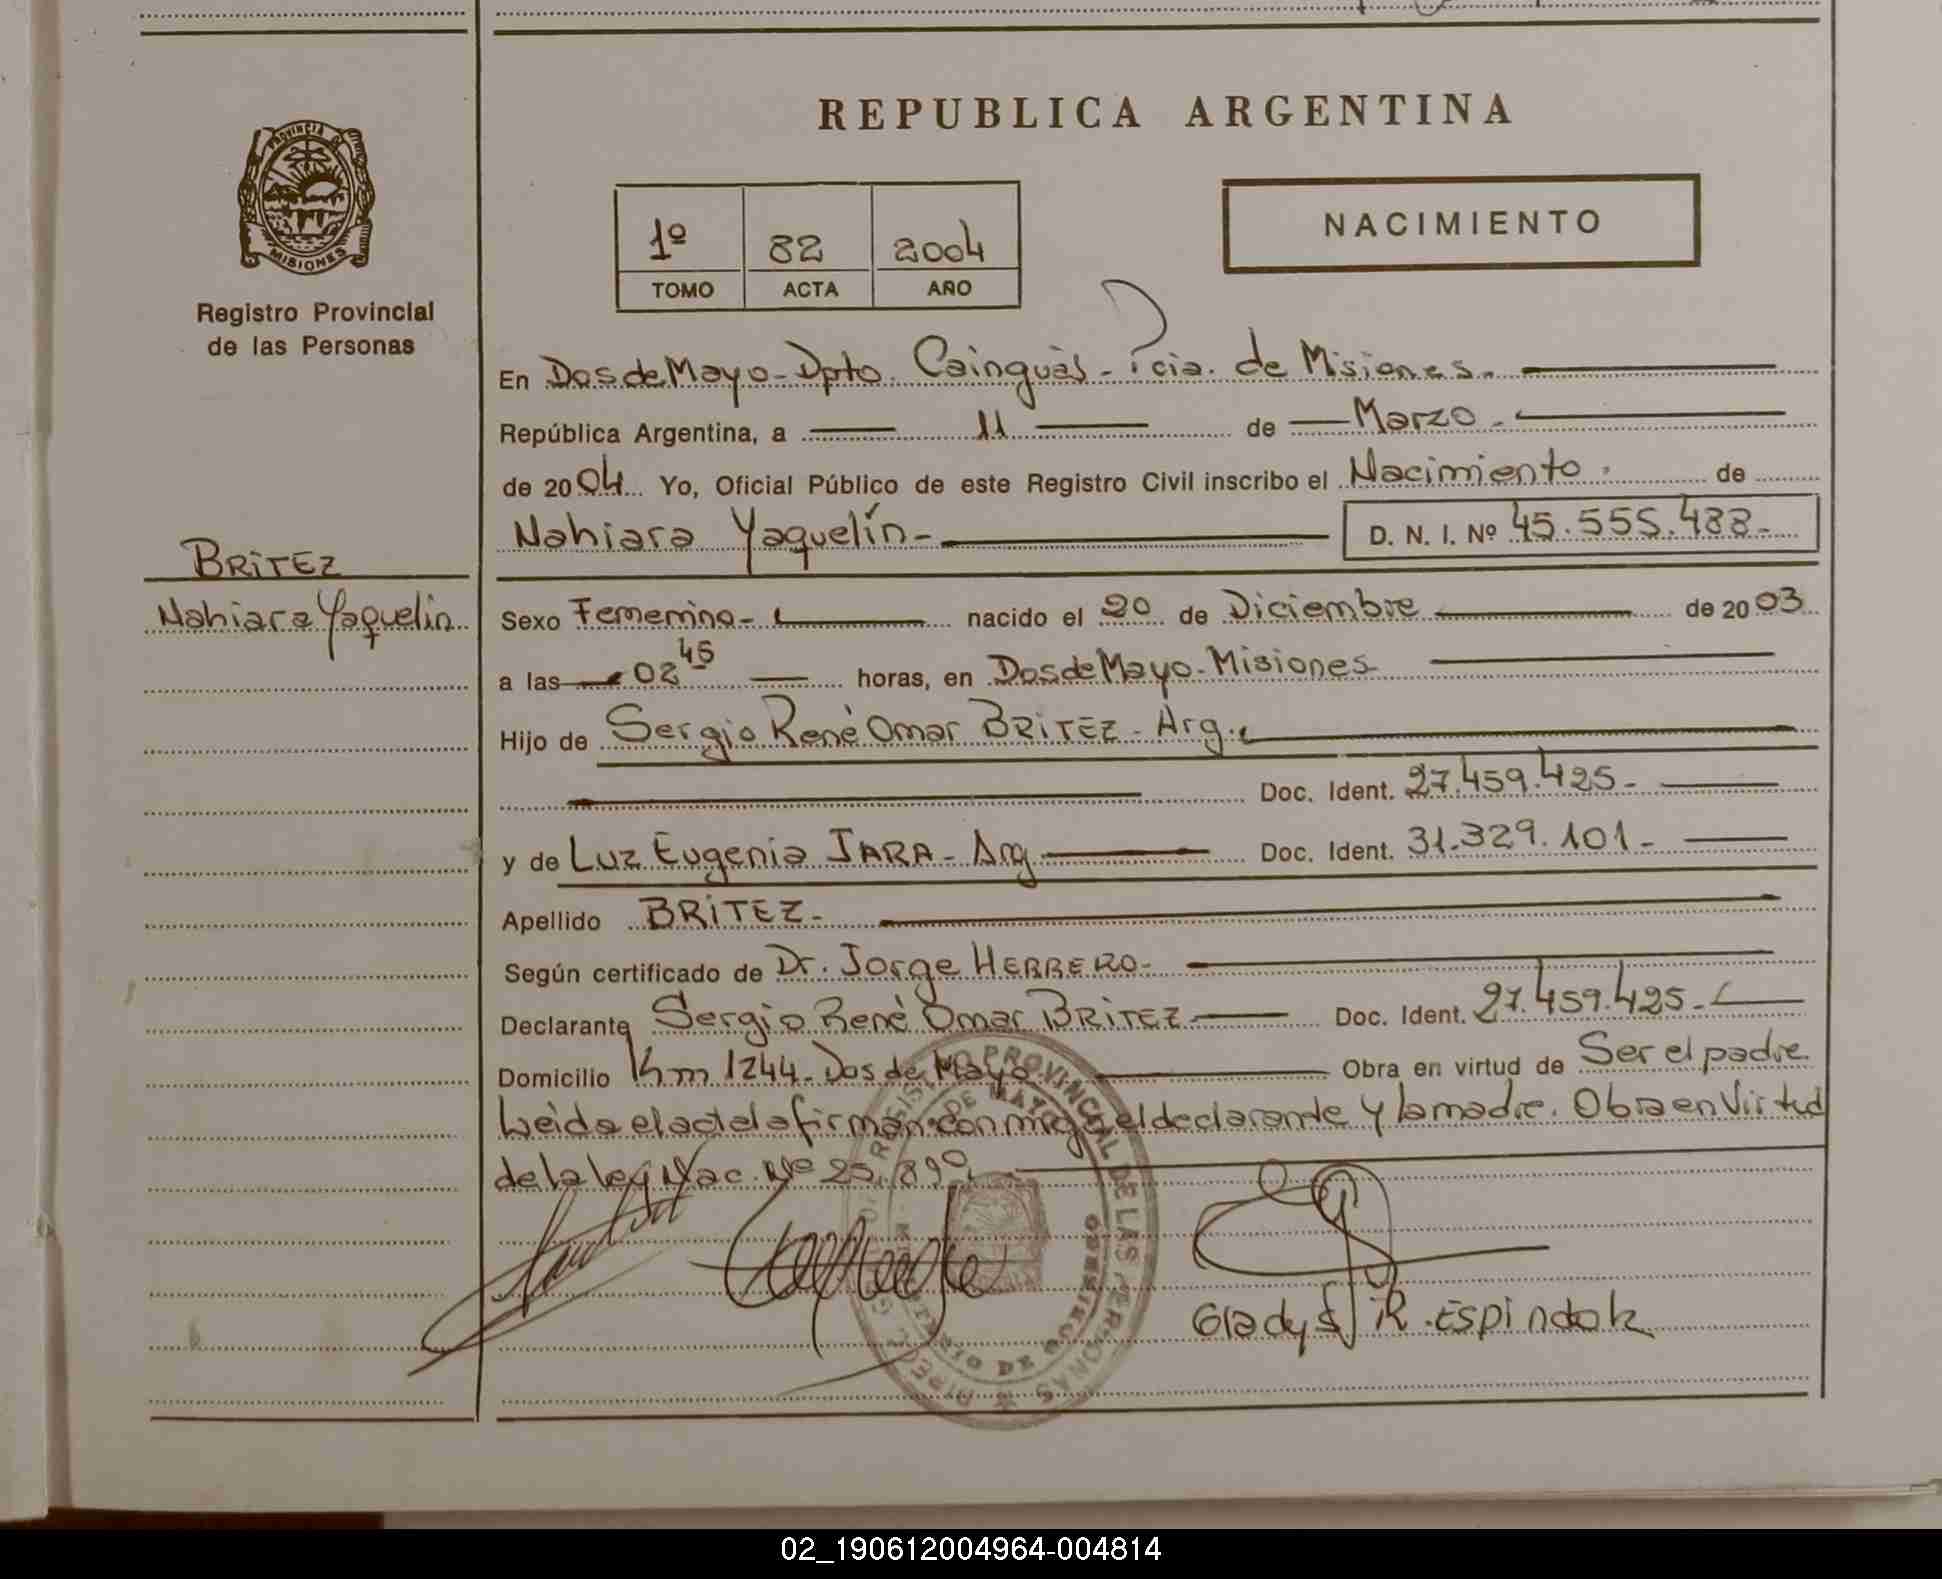 REPUBLICA ARGENTINA
PROVINCIA DE
MISIONES
Registro Provincial
de las Personas
NACIMIENTO
1º 82 2004
TOMO ACTA AÑO
En Dos de Mayo - Dpto. Cainguàs - Pcia. de Misiones.
República Argentina, a 11 de Marzo -
de 2004 Yo, Oficial Público de este Registro Civil inscribo el Nacimiento. de
Nahiara Yaquelín - D. N. I. Nº 45.555.488-
BRITEZ
Nahiara Yaquelin
Sexo Femenino - nacido el 20 de Diciembre de 2003
a las 02 45 horas, en Dos de Mayo - Misiones
Hijo de Sergio Renè Omar BRITEZ - Arg.
Doc. Ident. 27.459.425-
y de Luz Eugenia JARA - Arg Doc. Ident. 31.329.101-
Apellido BRITEZ -
Según certificado de Dr. Jorge HERRERO-
Declarante Sergio Renè Omar BRITEZ Doc. Ident. 27.459.425-
Domicilio Km 1244 - Dos de Mayo Obra en virtud de Ser el padre
Leida el acta la firman conmigo el declarante y la madre. Obra en Virtud
de la ley Nac. Nº 25.890
REGISTRO PROVINCIAL DE LAS PERSONAS
DE MAYO
Gladys R. Espindola
02_190612004964-004814